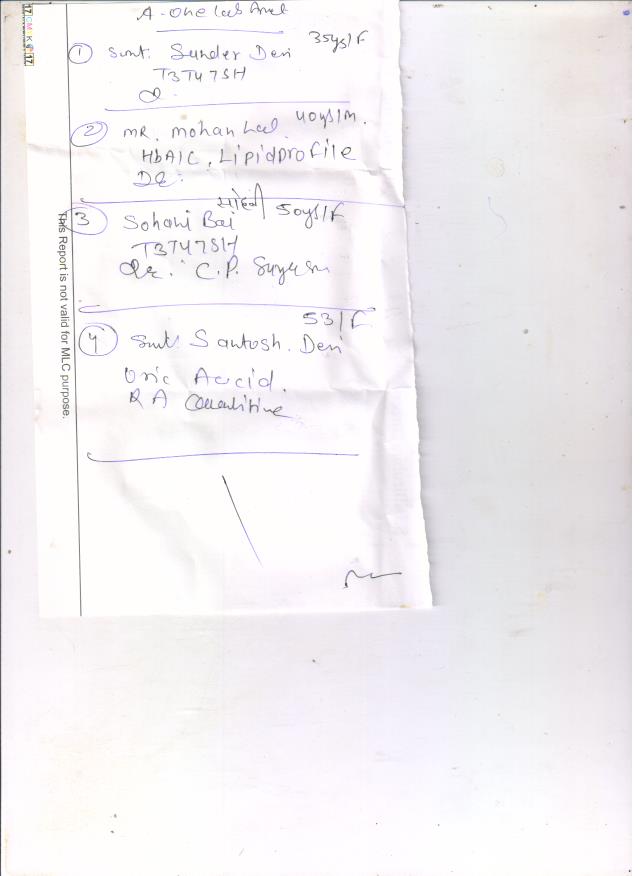 A-One Lab
35ys/F
① Smt. Sunder Devi
T3T4TSH
② MR. Mohan Lal. 40ys/M.
HbA1C, Lipid Profile
DR:
50ys/F
3 Sohani Bai
T3T4TSH
DR. C.P.
53/F
④ Smt. Santosh. Devi
Uric Acid.
RA
This Report is not valid for MLC purpose.